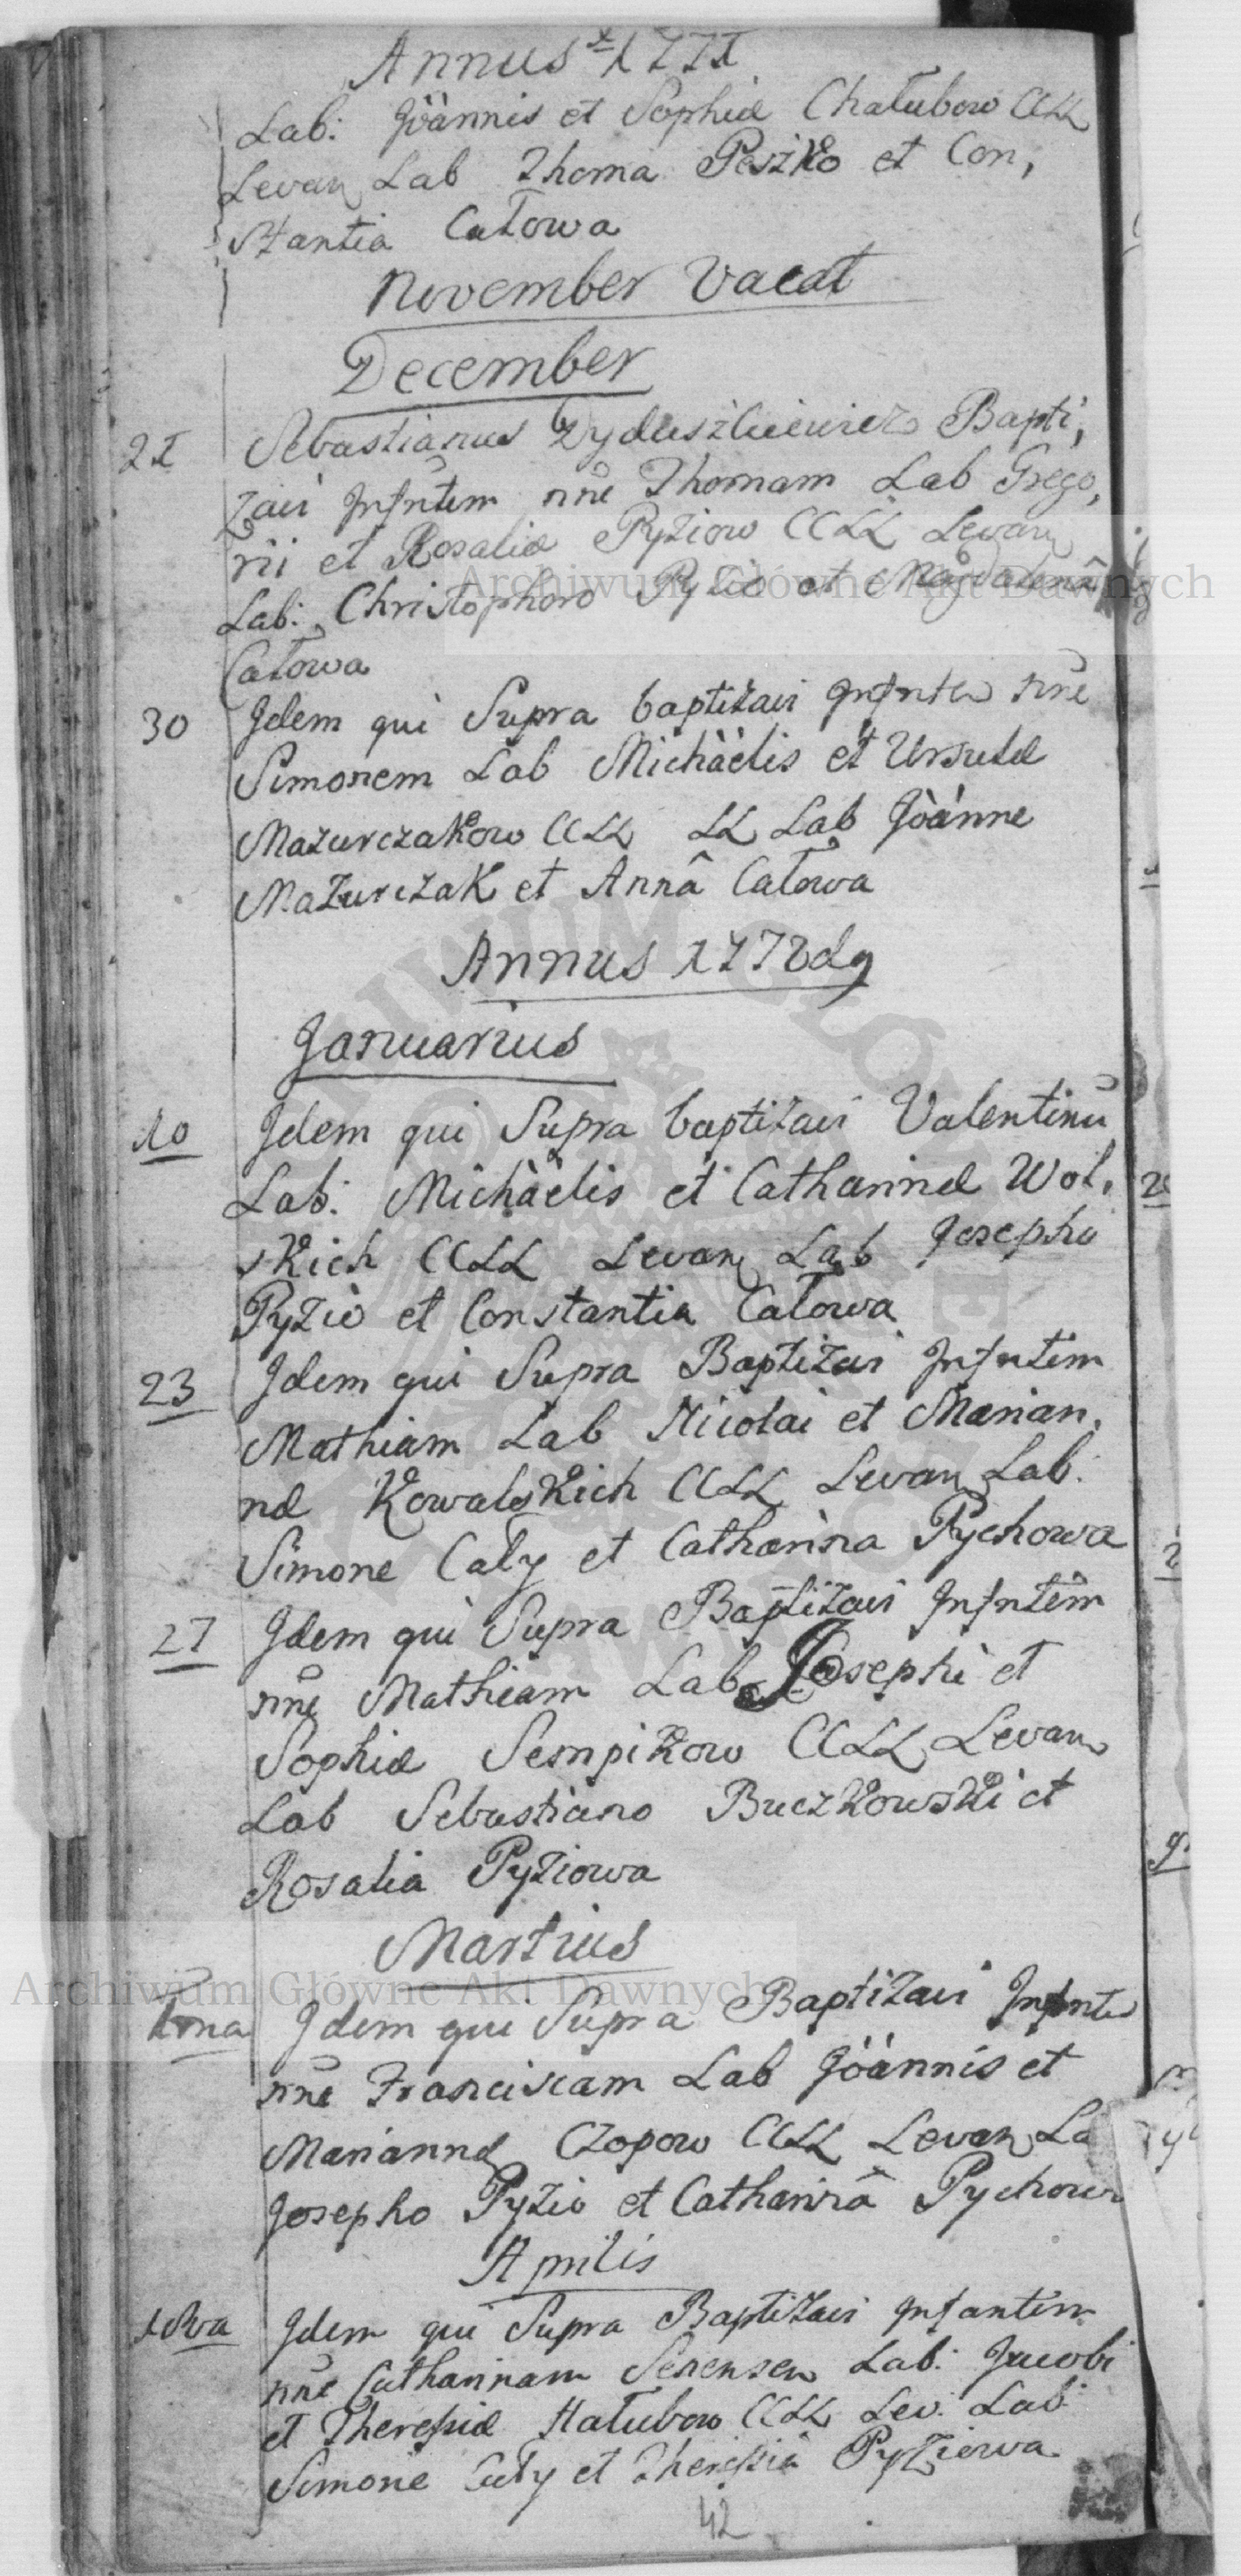 Annus 1771
Lab: Joannis et Sophiæ Chałubow CCLL
Levan Lab Thoma Peszko et Con,
stantia Całowa
November Vacat
December
21 Sebastianus Bapti,
zavi Infntem nne Thomam Lab Grego,
rii et Rosaliæ Pyziow CCLL Levan
Lab: Christophoro Pyzio et Magdalena
Całowa
30 Idem qui Supra baptizavi Infnte nne
Simonem Lab Michàelis et Ursulæ
Mazurczakow CCLL LL Lab Jòánne
Mazurczak et Annâ Całowa
Annus 1772dg
Januarius
10 Idem qui Supra baptizavi Valentinū
Lab: Michàelis et Catharinæ Wol,
skich CCLL Levan Lab Josepho
Pyzio et Constantia Całowa
23 Idem qui Supra Baptizavi Infntem
Mathiam Lab Nicolai et Marian,
næ Kowalskich CCLL Levan Lab:
Simone Cały et Catharina Pychowa
27 Idem qui Supra Baptizavi Infntem
nne Mathiam Lab Josephi et
Sophiæ Sempikow CCLL Levan
Lab Sebastiano Buczkowski et
Rosalia Pyziowa
Martius
1ma Idem qui Supra Baptizavi Infnte
nne Franciscam Lab Jòánnis et
Mariannæ Czopow CCLL Levan La
Josepho Pyzio et Catharinâ Pychowa
Aprilis
Idem qui Supra Baptizavi Infantem
nne Catharinam Senensem Lab: Jacobi
et Theresiæ Hałubow CCLL Lev: Lab
Simone Cały et Theresia Pyziowa
42
Archiwum Główne Akt Dawnych
Archiwum Główne Akt Dawnych